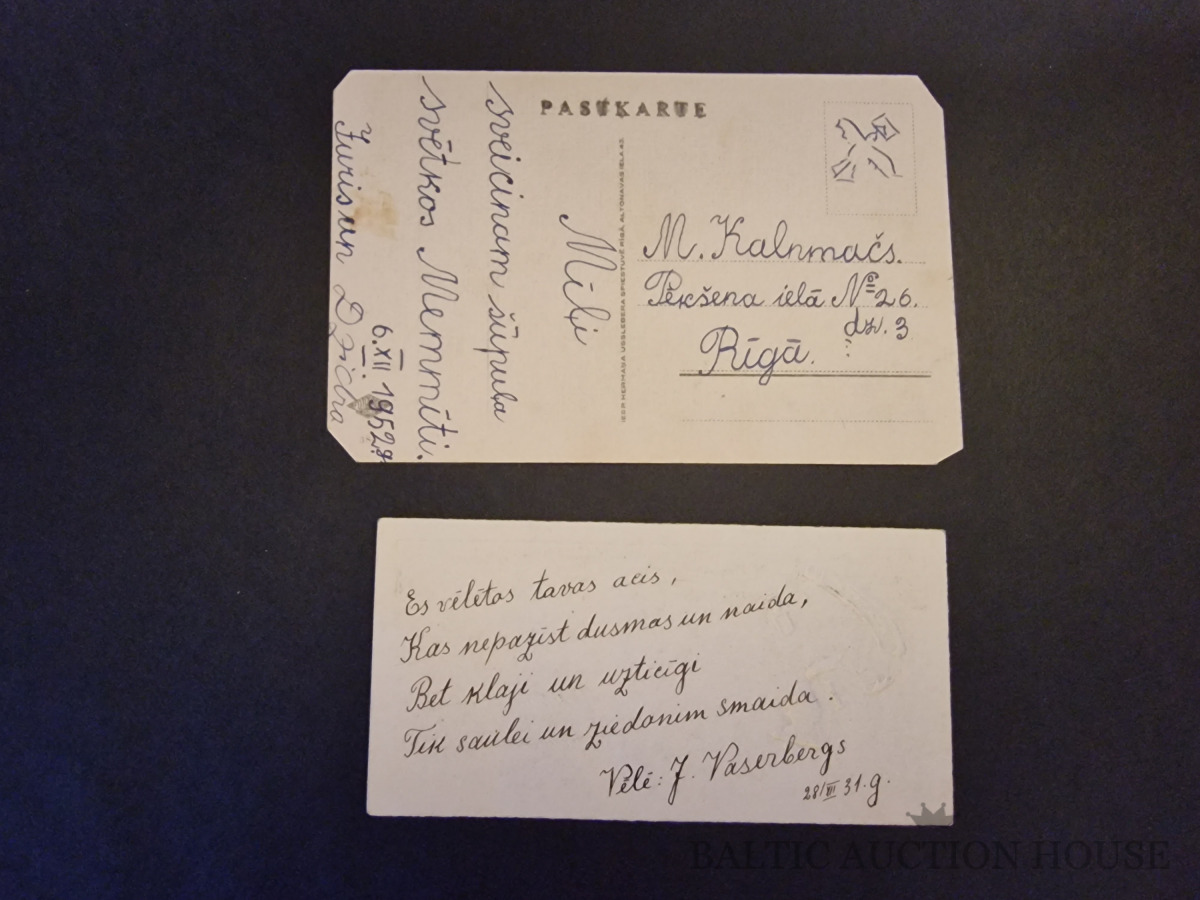 PASTKARTE
Mīļi
sveicinam šūpuļa
svētkos Memmīti.
6.XII 1952g.
Juris un Dzidra
M. Kalnmačs.
Pēkšena ielā № 26.
dz. 3
Rīgā.
Es vēlētos tavas acis,
Kas nepazīst dusmas un naida,
Bet klaji un uzticīgi
Tik saulei un ziedonim smaida.
Vēlē: J. Vaserbergs
28/III 31.g.
BALTIC AUCTION HOUSE